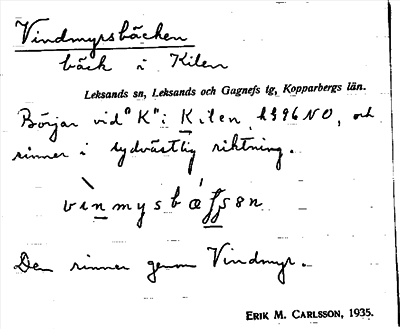 Vindmyrsbäcken
bäck i Kilen
Leksands sn, Leksands och Gagnefs tg, Kopparbergs län.
Börjar vid "K" i Kilen, 96 NO, och
rinner i sydvästlig riktning.
Den rinner genom Vindmyr.
ERIK M. CARLSSON, 1935.